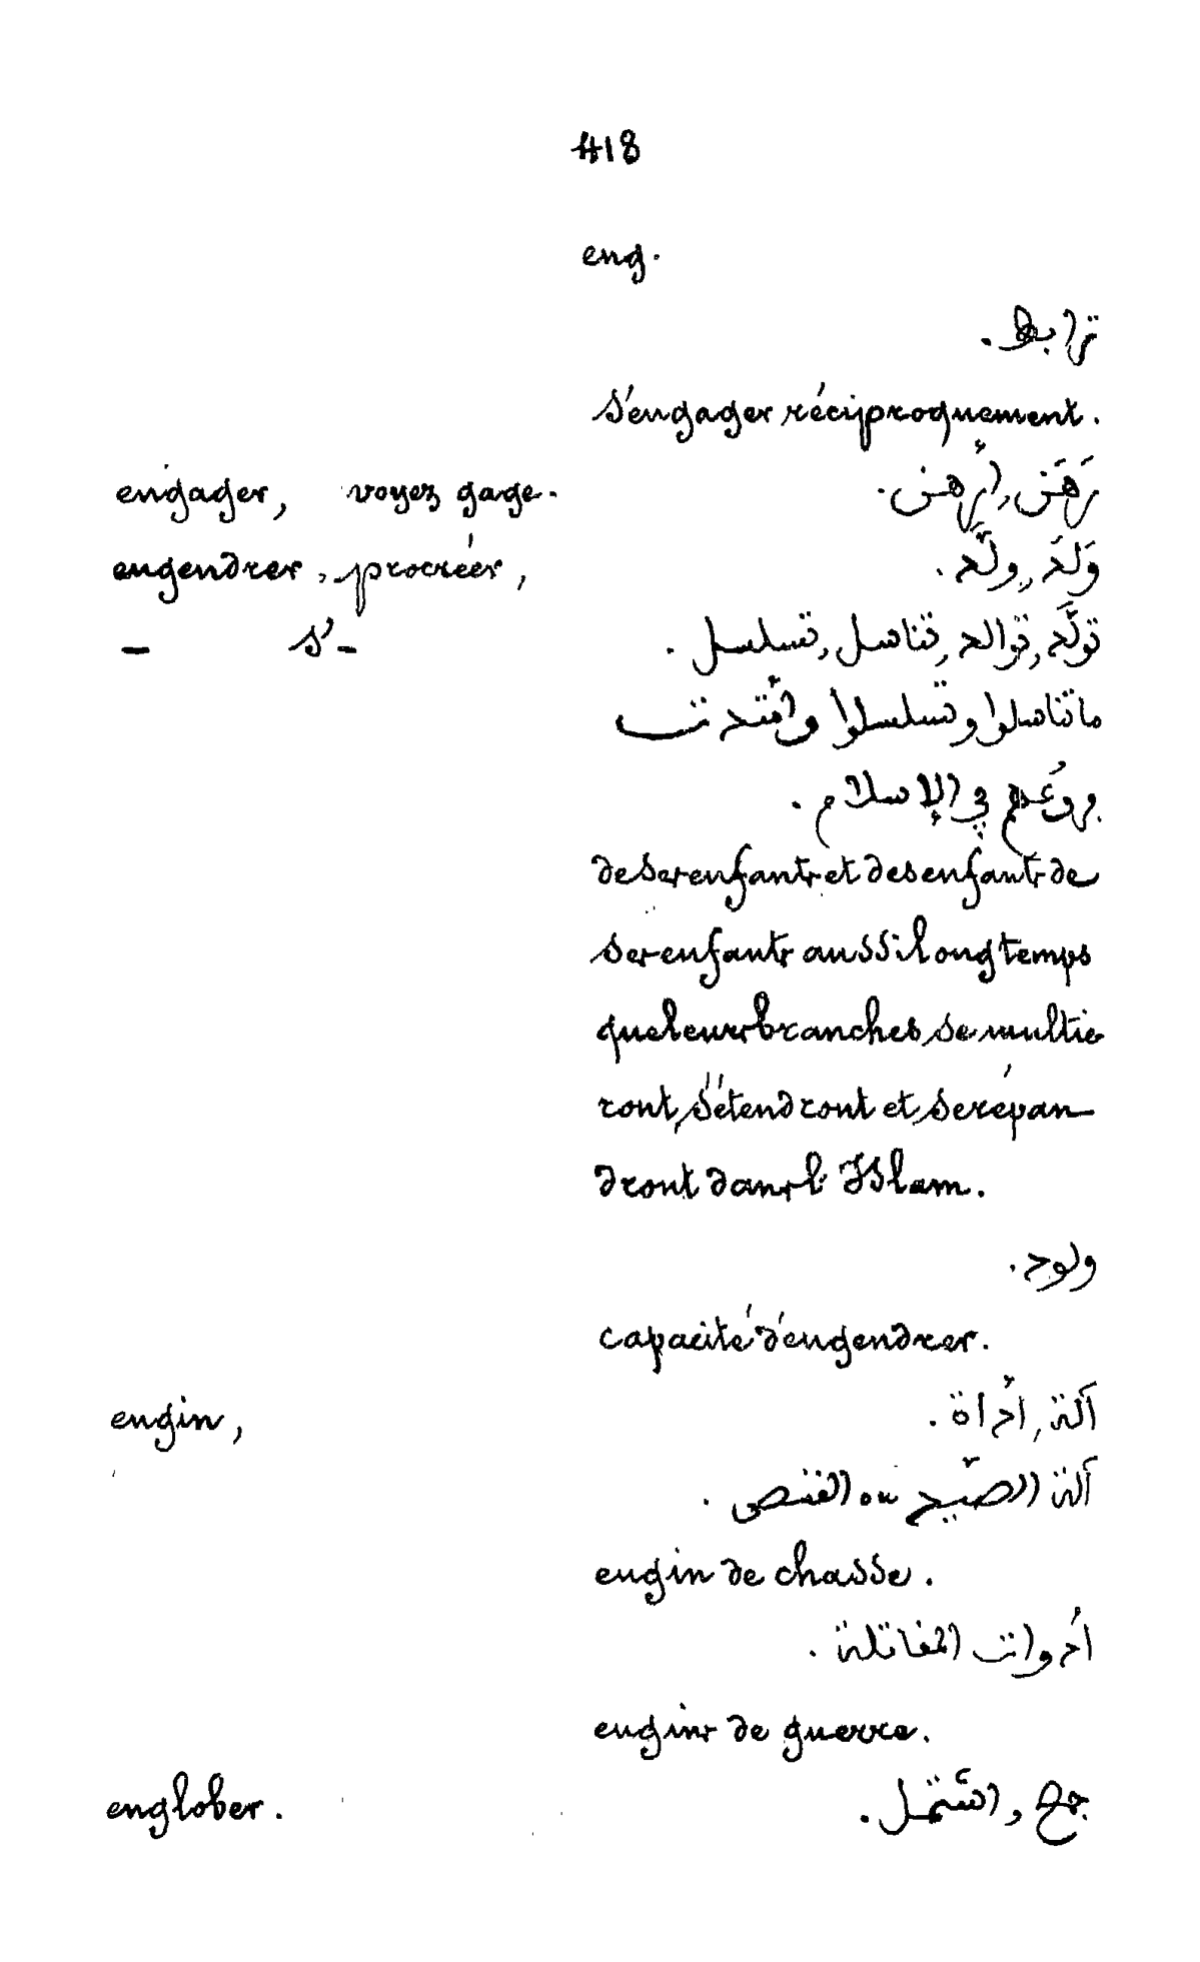 418
eng.
ترابط.
s'engager réciproquement.
engager, voyez gage. رَهَن, أرهن.
engendrer, procréer, وَلَدَ, ولَّد.
— s'- تولَّد, توالد, تناسل, تسلسل.
ما تناسلوا وتسلسلوا وامْتدت
فروعُهم في الإسلام.
de ses enfants et des enfants de
ses enfants aussi longtemps
que leurs branches se multie
ront, s'étendront et se répan-
dront dans l'Islam.
ولود.
capacité d'engendrer.
engin, آلة, أداة.
آلة الصّيد ou القنص.
engin de chasse.
أدوات المقاتلة.
engins de guerre.
englober. جمع, اشتمل.